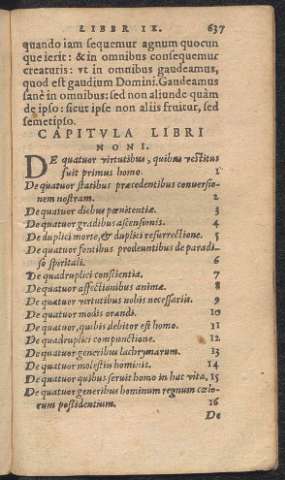 LIBER IX. 637
quando iam sequemur agnum quocun
que ierit: & in omnibus consequemur
creaturis: vt in omnibus gaudeamus,
quod est gaudium Domini. Gaudeamus
sanè in omnibus: sed non aliunde quàm
de ipso: sicut ipse non aliis fruitur, sed
semetipso.
CAPITVLA LIBRI
NONI.
DE quatuor virtutibus, quibus vestitus
fuit primus homo. 1
De quatuor statibus præcedentibus conuersio-
nem nostram. 2
De quatuor diebus pœnitentiæ. 3
De quatuor gradibus ascensionis. 4
De duplici morte, & duplici resurrectione. 5
De quatuor fontibus prodeuntibus de paradi-
so spiritali. 6
De quadruplici conscientia. 7
De quatuor affectionibus animæ. 8
De quatuor virtutibus nobis necessariis. 9
De quatuor modis orandi. 10
De quatuor, quibus debitor est homo. 11
De quadruplici compunctione. 12
De quatuor generibus lachrymarum. 13
De quatuor molestiis hominis. 14
De quatuor quibus seruit homo in hac vita. 15
De quatuor generibus hominum regnum cœlo-
rum possidentium. 16
De